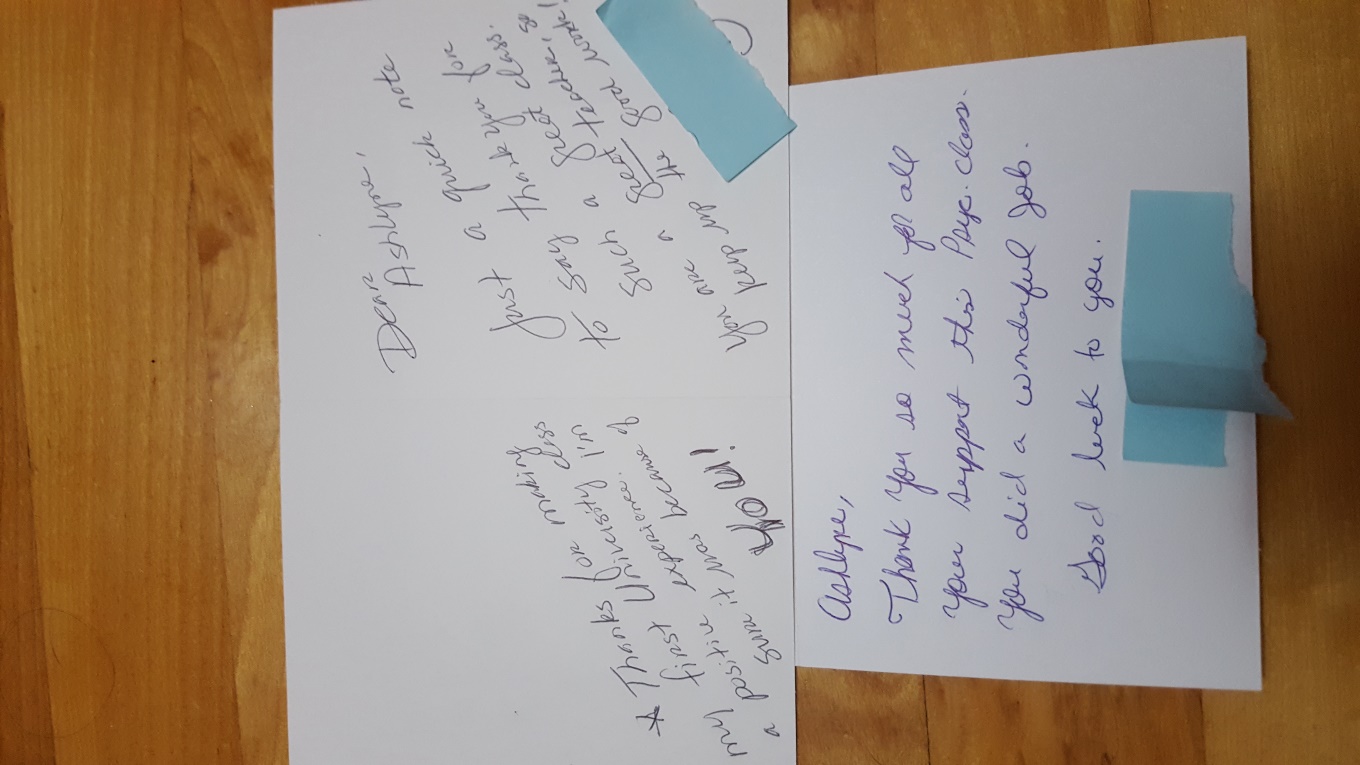 Dear
Ashlyne,
Just a quick note
to say thank you for
such a great class.
You are a great teacher, so
keep up the good work!
★ Thanks for making
my first University class
a positive experience. I'm
sure it was because of
YOU!
Ashlyne,
Thank you so much for all
your support this Psyc. class.
You did a wonderful job.
Good luck to you.